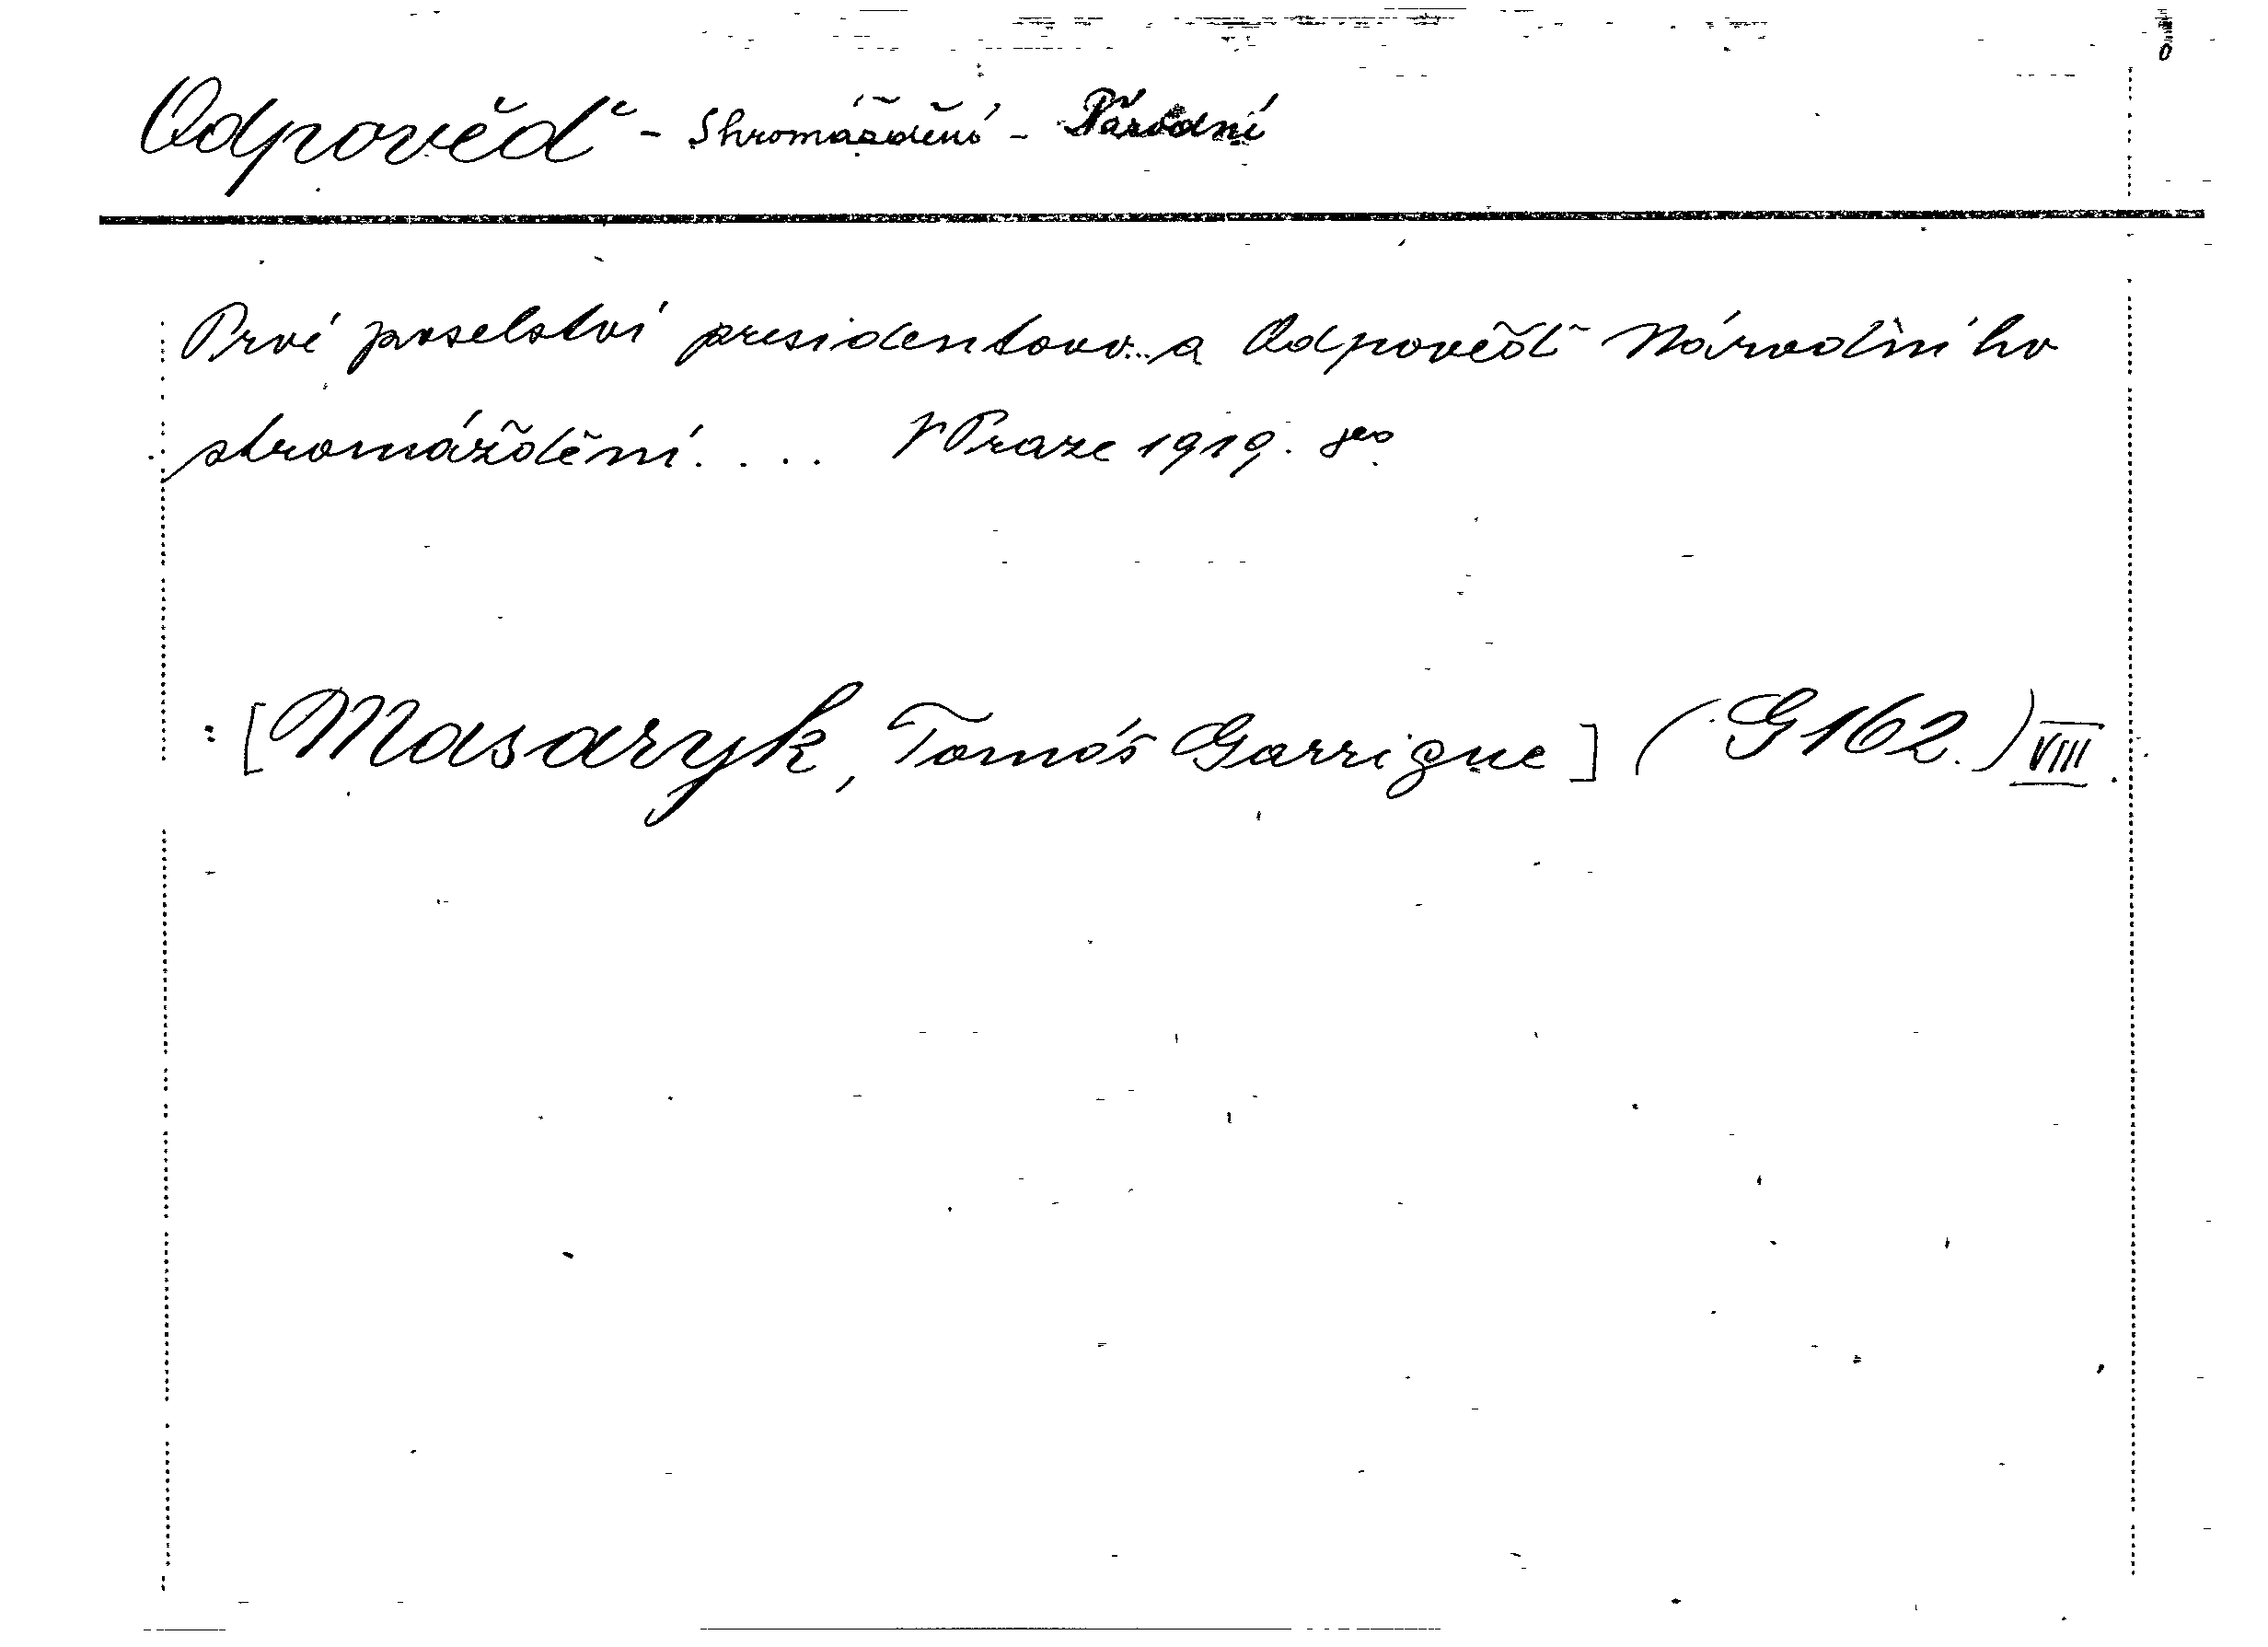 Odpověď - Shromáždění - Národní
Prvé poselství presidentovo... a Odpověď Národního
shromáždění.... V Praze 1919. 8°
: [Masaryk, Tomáš Garrigue] (G 162.) VIII.